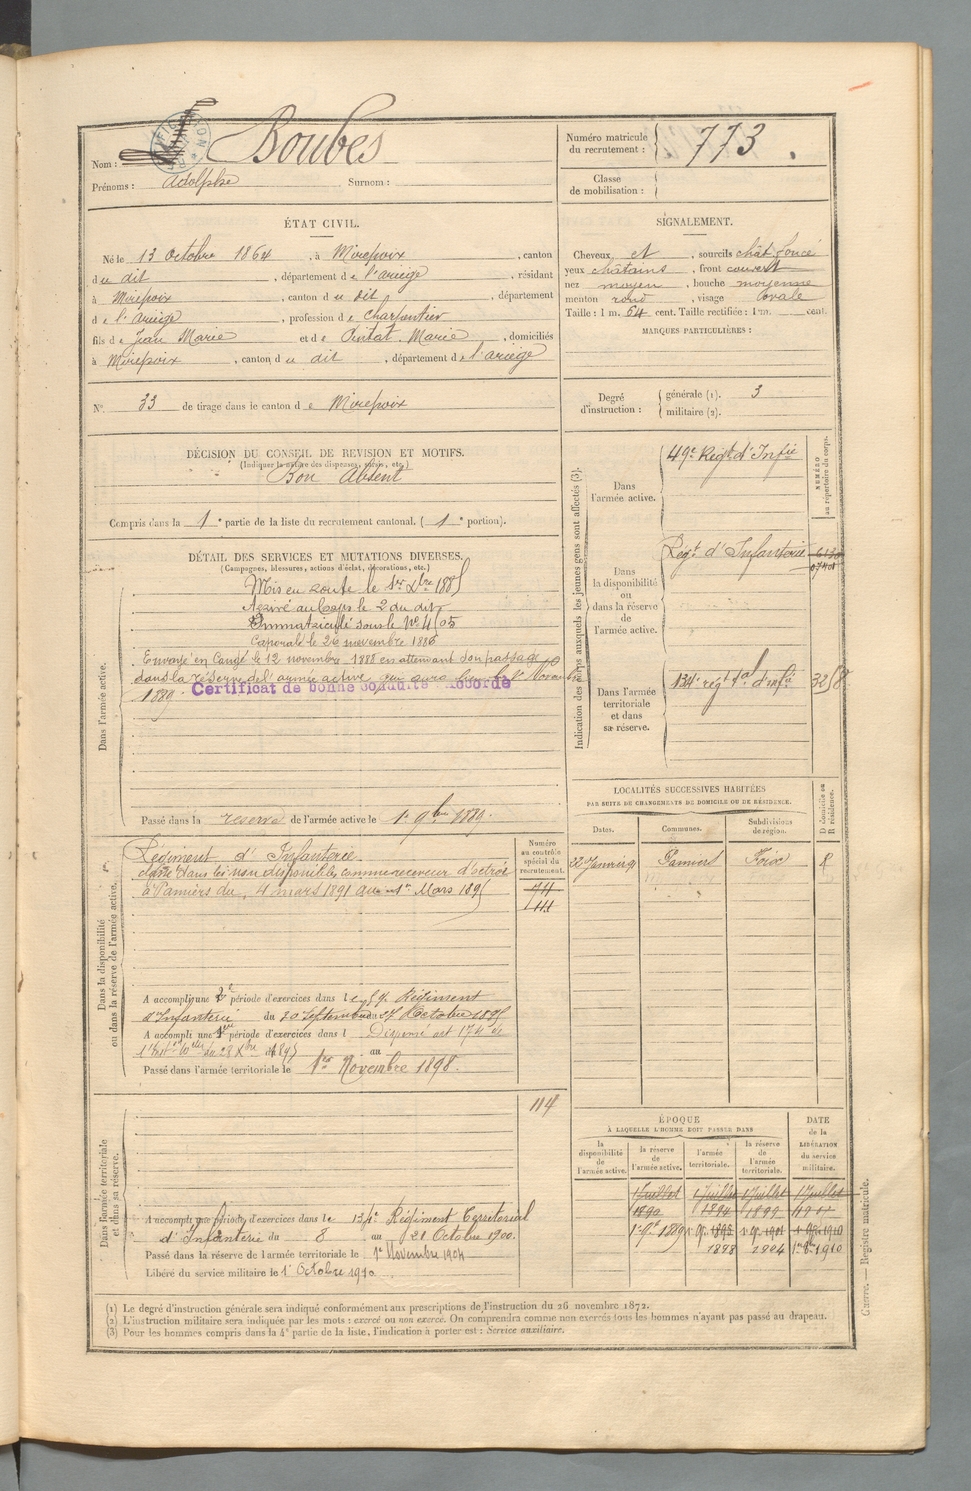 Nom : Boubes
Prénoms : Adolphe Surnom :
Numéro matricule du recrutement : 773.
Classe de mobilisation :
ÉTAT CIVIL.
Né le 13 Octobre 1864, à Mirepoix, canton
du dit, département de l'ariège, résidant
à Mirepoix, canton du dit, département
de l'ariège, profession de Charpentier
fils de Jean Marie et de Pintat Marie, domiciliés
à Mirepoix, canton du dit, département de l'ariège
N° 33 de tirage dans le canton de Mirepoix
SIGNALEMENT.
Cheveux et, sourcils chât. foncé
yeux châtains, front couvert
nez moyen, bouche moyenne
menton rond, visage ovale
Taille : 1 m. 64 cent. Taille rectifiée : 1 m. cent.
MARQUES PARTICULIÈRES :
Degré d'instruction : générale (1). 3
militaire (2).
DÉCISION DU CONSEIL DE REVISION ET MOTIFS.
(Indiquer la nature des dispenses, sursis, etc.)
Bon Absent
Compris dans la 1e partie de la liste du recrutement cantonal. (1e portion).
DÉTAIL DES SERVICES ET MUTATIONS DIVERSES.
(Campagnes, blessures, actions d'éclat, décorations, etc.)
Dans l'armée active.
Mis en route le 1er Xbre 1885
Arrivé au Corps le 2 du dit
Immatriculé sous le N° 4505
Caporal le 26 novembre 1886
Envoyé en Congé le 12 novembre 1888 en attendant son passage
dans la réserve de l'armée active qui aura lieu le 1er Novembre
1889
Certificat de bonne conduite Accordé
Passé dans la réserve de l'armée active le 1er 9bre 1889.
Indication des corps auxquels les jeunes gens sont affectés (3).
NUMÉRO au répertoire du corps.
Dans l'armée active. 49e Régt d'Infie
Dans la disponibilité ou dans la réserve de l'armée active. Régt d'Infanterie
Dans l'armée territoriale et dans sa réserve. 134e régt tal d'infie 3258
LOCALITÉS SUCCESSIVES HABITÉES
PAR SUITE DE CHANGEMENTS DE DOMICILE OU DE RÉSIDENCE.
Dates. Communes. Subdivisions de région. D domicile ou R résidence.
22 Janvier 91 Pamiers Foix R
Dans la disponibilité ou dans la réserve de l'armée active.
Numéro au contrôle spécial du recrutement.
Régiment d'Infanterie
Classé dans les non disponibles comme receveur d'octroi
à Pamiers du 4 mars 1891 au 1er Mars 1895
A accompli une 2e période d'exercices dans le 59e Régiment
d'Infanterie du 30 Septembre au 27 Octobre 1895
A accompli une 1ère période d'exercices dans l Dispensé art 174 de
l'Inst. du 28 Xbre 1895 au
Passé dans l'armée territoriale le 1er Novembre 1898.
114
Dans l'armée territoriale et dans sa réserve.
A accompli une période d'exercices dans le 134e Régiment Territorial
d'Infanterie du 8 au 21 Octobre 1900.
Passé dans la réserve de l'armée territoriale le 1er Novembre 1904
Libéré du service militaire le 1er Octobre 1910
ÉPOQUE À LAQUELLE L'HOMME DOIT PASSER DANS
la disponibilité de l'armée active. la réserve de l'armée active. l'armée territoriale. la réserve de l'armée territoriale.
DATE de la LIBÉRATION du service militaire.
1 Juillet 1 Juillet 1 Juillet 1 Juillet
1890
1er 9bre 1889
1898 1904 1er 8bre 1910
(1) Le degré d'instruction générale sera indiqué conformément aux prescriptions de l'instruction du 26 novembre 1872.
(2) L'instruction militaire sera indiquée par les mots : exercé ou non exercé. On comprendra comme non exercés tous les hommes n'ayant pas passé au drapeau.
(3) Pour les hommes compris dans la 4e partie de la liste, l'indication à porter est : Service auxiliaire.
Guerre. — Registre matricule.